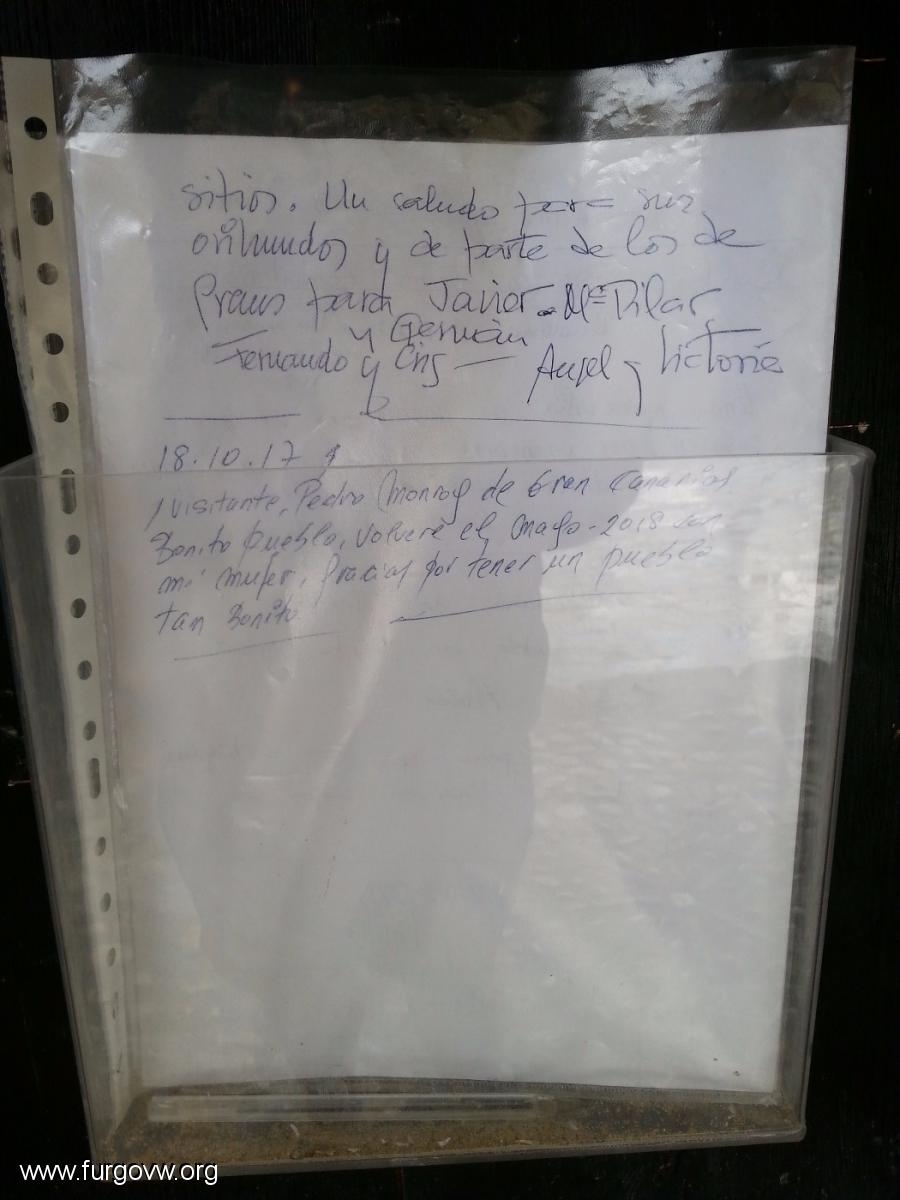 sitios. Un saludo para sus
orihundos y de parte de los de
para Javier. Mª Pilar
y Germán
Fernando y Cris — Angel y Victoria
18.10.17
1 visitante, Pedro Monroy de Gran Canarias
Bonito pueblo, volveré el Mayo-2018 con
mi mujer, gracias por tener un pueblo
tan Bonito
www.furgovw.org